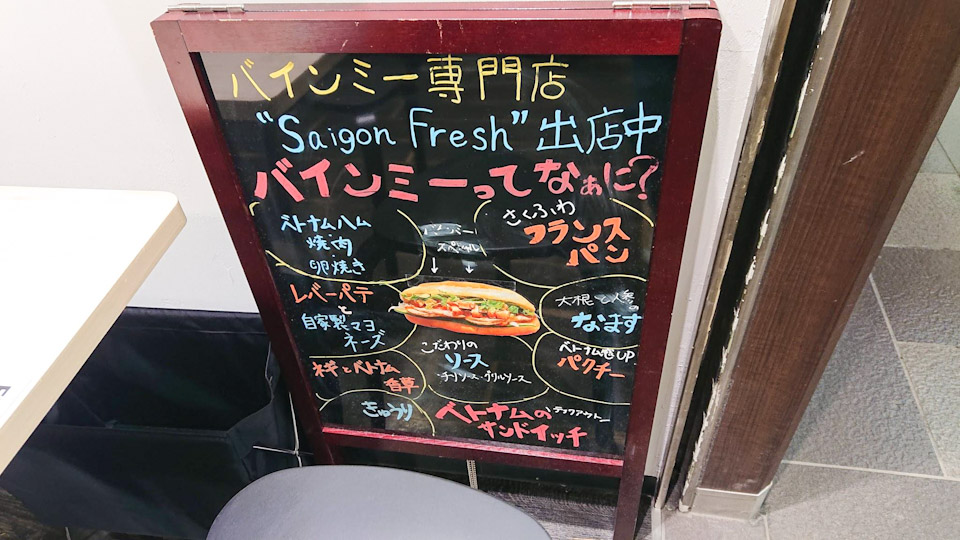 バインミー専門店
"Saigon Fresh" 出店中
バインミーってなぁに?
ベトナムハム
焼肉
卵焼き
スペシャル
さくふわ
フランス
パン
レバーパテ
と
自家製マヨ
ネーズ
大根と人参の
なます
こだわりの
ソース
チリソース・グリルソース
ベトナム感UP
パクチー
ネギとベトナム
香草
きゅうり
ベトナムの
テイクアウト
サンドイッチ